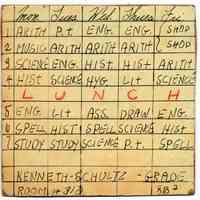 Mon Tues Wed Thurs Fri
1 ARITH P.t. ENG. ENG. SHOP
2 MUSIC ARITH ARITH ARITH SHOP
3 SCIENCE ENG. HIST HIST ARITH
4 HIST SCIENCE HYG. LIT SCIENCE
LUNCH
5 ENG. LIT ASS. DRAW ENG.
6 SPELL HIST SPELL SCIENCE HIST
7 STUDY STUDY SCIENCE P.t. SPELL
KENNETH-SCHULTZ - GRADE
ROOM # 313 8B2